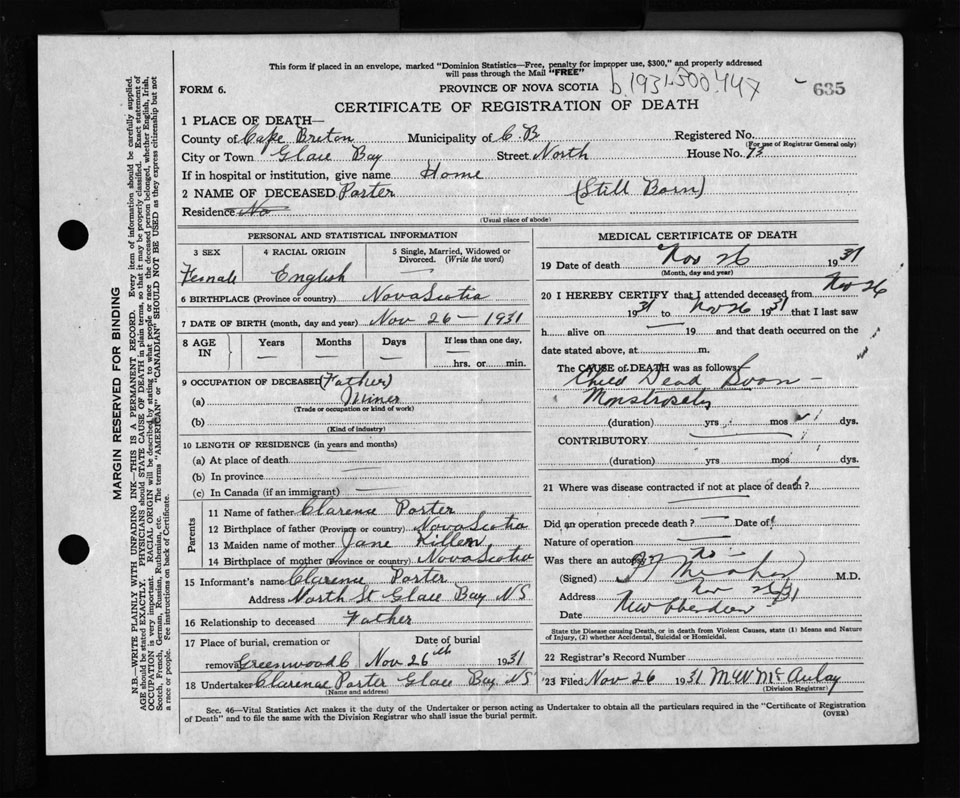 This form if placed in an envelope, marked "Dominion Statistics—Free, penalty for improper use, $300," and properly addressed
will pass through the Mail "FREE"
FORM 6. PROVINCE OF NOVA SCOTIA b.1931-500.447 635
CERTIFICATE OF REGISTRATION OF DEATH
1 PLACE OF DEATH—
County of Cape Breton Municipality of C.B Registered No.
(For use of Registrar General only)
City or Town Glace Bay Street North House No. 73
If in hospital or institution, give name Home
2 NAME OF DECEASED Porter (Still Born)
Residence No
(Usual place of abode)
PERSONAL AND STATISTICAL INFORMATION
3 SEX 4 RACIAL ORIGIN 5 Single, Married, Widowed or
Divorced. (Write the word)
Female English
6 BIRTHPLACE (Province or country) Nova Scotia
7 DATE OF BIRTH (month, day and year) Nov 26 — 1931
8 AGE IN Years Months Days If less than one day,
— — — — hrs. or min.
9 OCCUPATION OF DECEASED (Father)
(a) Miner
(Trade or occupation or kind of work)
(b)
(Kind of industry)
10 LENGTH OF RESIDENCE (in years and months)
(a) At place of death
(b) In province
(c) In Canada (if an immigrant)
Parents
11 Name of father Clarence Porter
12 Birthplace of father (Province or country) Nova Scotia
13 Maiden name of mother Jane Killen
14 Birthplace of mother (Province or country) Nova Scotia
15 Informant's name Clarence Porter
Address North St Glace Bay NS
16 Relationship to deceased Father
17 Place of burial, cremation or Date of burial
removal Greenwood C Nov 26th 1931
18 Undertaker Clarence Porter Glace Bay NS
(Name and address)
MEDICAL CERTIFICATE OF DEATH
19 Date of death Nov 26 1931
(Month, day and year)
20 I HEREBY CERTIFY that I attended deceased from Nov 26
1931 to Nov 26 1931 that I last saw
h alive on — 19 and that death occurred on the
date stated above, at m.
The CAUSE of DEATH was as follows:
Child Dead Born —
Monstrosety
(duration) yrs. mos dys.
CONTRIBUTORY
(duration) yrs. mos dys.
21 Where was disease contracted if not at place of death?
Did an operation precede death? — Date of
Nature of operation
Was there an autopsy? No
(Signed) M.D.
Address New Aberdeen
Date Nov 26/31
State the Disease causing Death, or in death from Violent Causes, state (1) Means and Nature
of Injury, (2) whether Accidental, Suicidal or Homicidal.
22 Registrar's Record Number
23 Filed Nov 26 1931 M W McAulay
(Division Registrar)
Sec. 46—Vital Statistics Act makes it the duty of the Undertaker or person acting as Undertaker to obtain all the particulars required in the "Certificate of Registration
of Death" and to file the same with the Division Registrar who shall issue the burial permit.
(OVER)
MARGIN RESERVED FOR BINDING
N.B.—WRITE PLAINLY WITH UNFADING INK—THIS IS A PERMANENT RECORD. Every item of information should be carefully supplied.
AGE should be stated EXACTLY. PHYSICIANS should STATE CAUSE OF DEATH in plain terms, so that it may be properly classified. Exact statement of
OCCUPATION is very important. RACIAL ORIGIN will be described by stating to what people or race the deceased person belonged, whether English, Irish,
Scotch, French, German, Russian, Ruthenian, etc. The terms "AMERICAN" or "CANADIAN" SHOULD NOT BE USED as they express citizenship but not
a race or people. See instructions on back of Certificate.